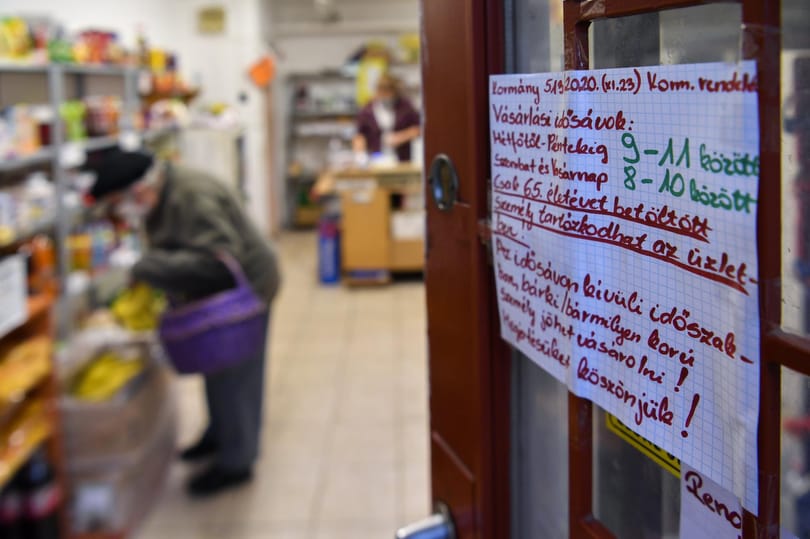 Kormány 519.2020. (XI.23) Korm. rendelet
Vásárlási idősávok:
Hétfőtől-Péntekig 9-11 között
Szombat és Vasárnap 8-10 között
Csak 65. életévet betöltött
személy tartózkodhat az üzlet-
ben.
Az idősávon kívüli időszak-
ban, bárki/bármilyen korú
személy jöhet vásárolni!
Megértésüket köszönjük!
Rend